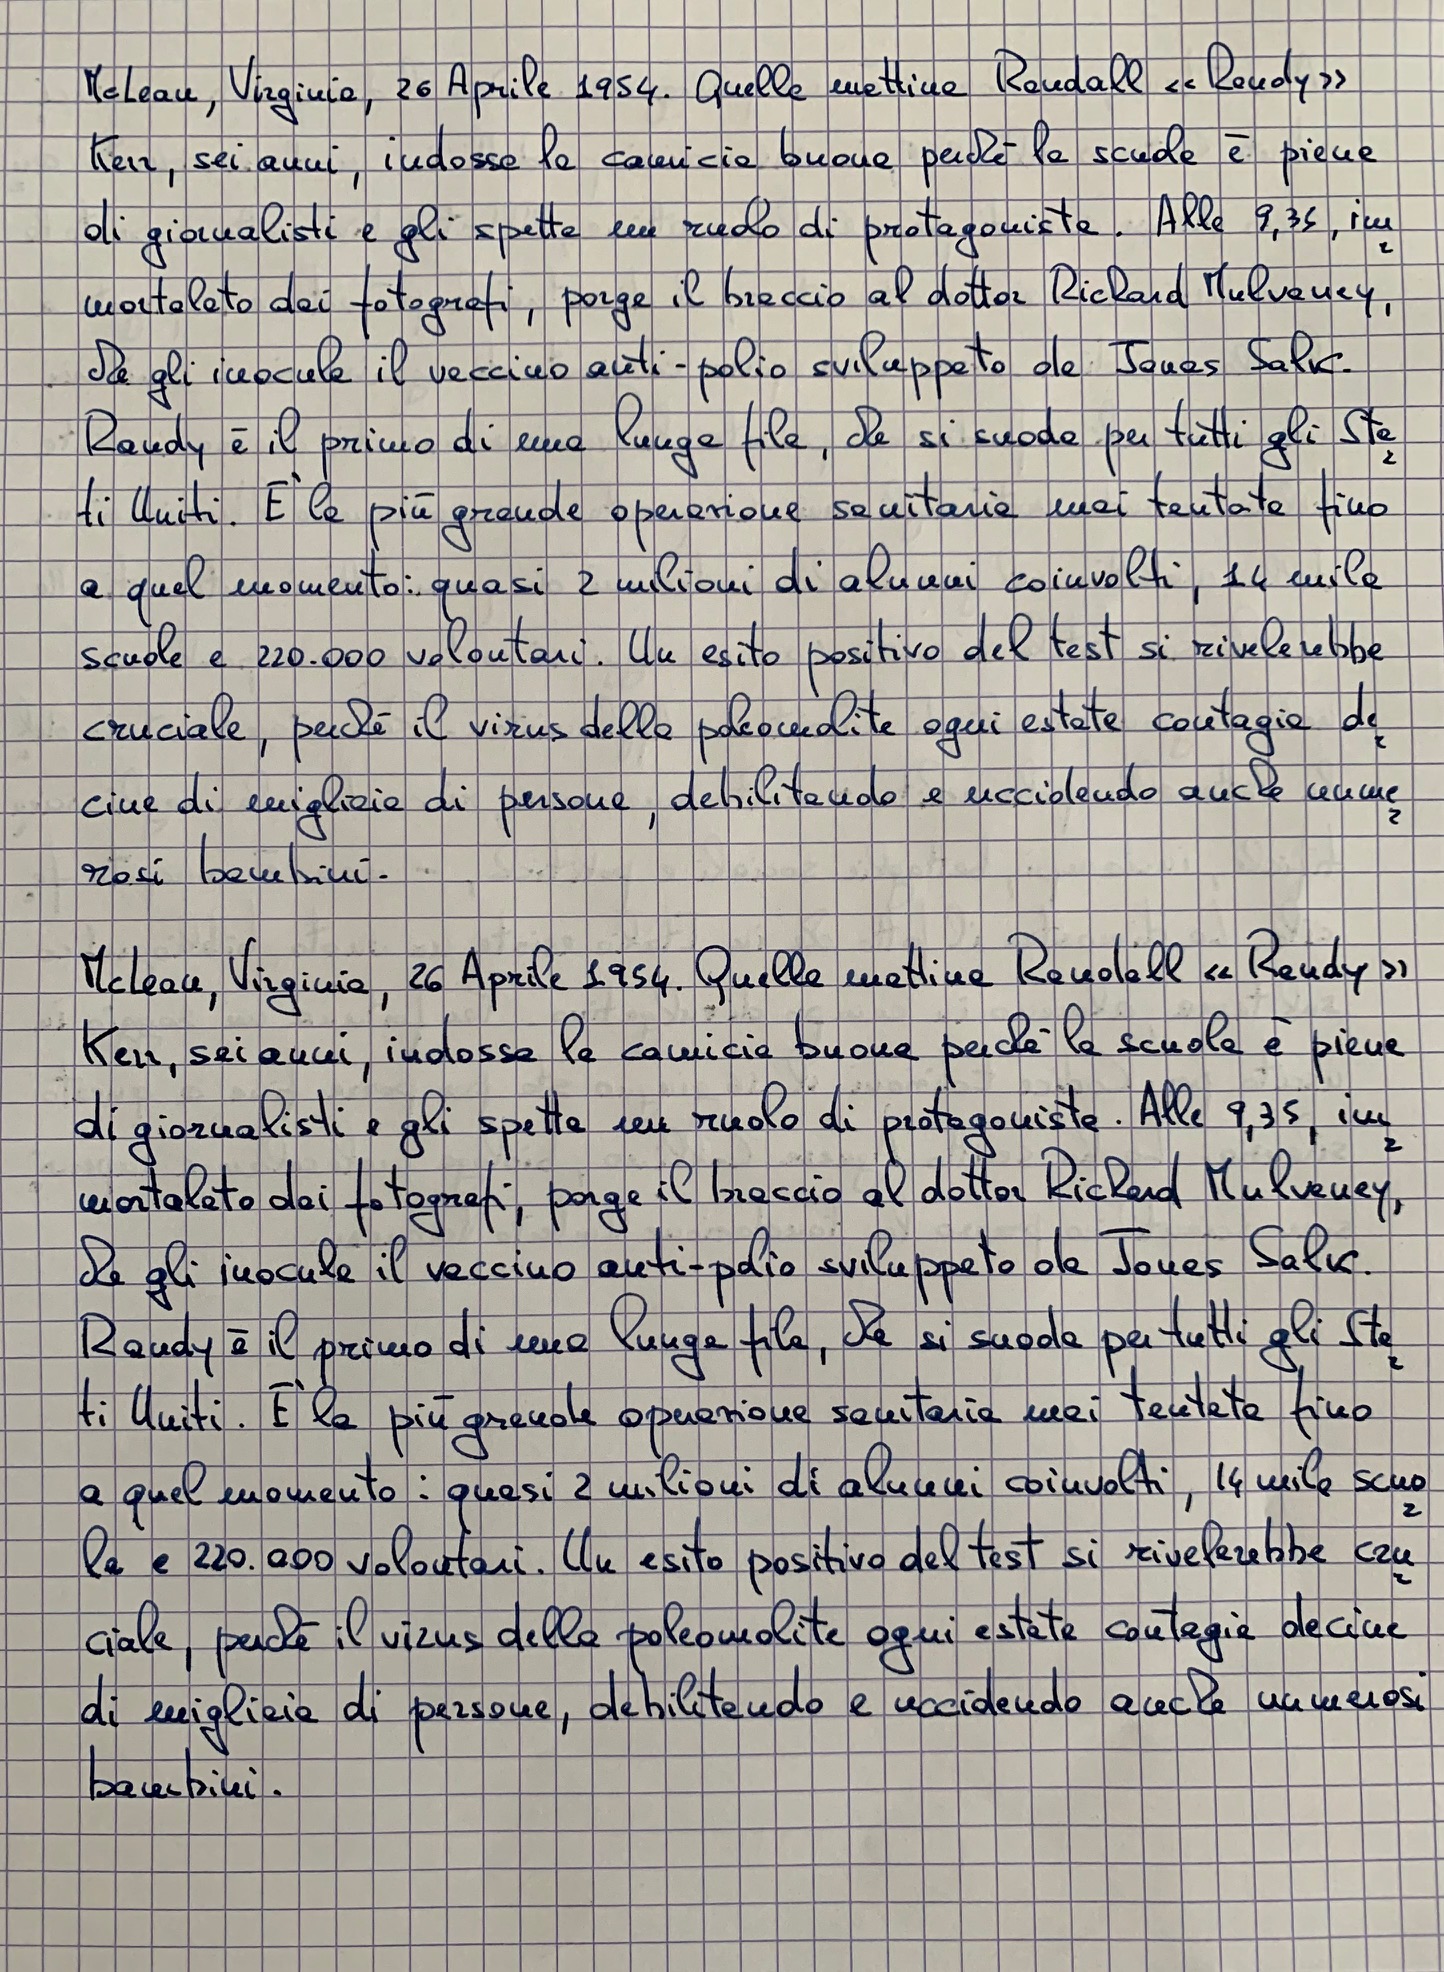 McLean, Virginia, 26 Aprile 1954. Quella mattina Randall «Randy»
Kerr, sei anni, indossa la camicia buona perchè la scuola è piena
di giornalisti e gli spetta un ruolo di protagonista. Alle 9,35, im
mortalato dai fotografi, porge il braccio al dottor Richard Mulvaney,
che gli inocula il vaccino anti-polio sviluppato da Jonas Salk.
Randy è il primo di una lunga fila, che si snoda per tutti gli Sta
ti Uniti. È la più grande operazione sanitaria mai tentata fino
a quel momento: quasi 2 milioni di alunni coinvolti, 14 mila
scuole e 220.000 volontari. Un esito positivo del test si rivelerebbe
cruciale, perchè il virus della poleomolite ogni estate contagia de
cine di migliaia di persone, debilitando e uccidendo anche nume
rosi bambini.
McLean, Virginia, 26 Aprile 1954. Quella mattina Randall «Randy»
Kerr, sei anni, indossa la camicia buona perchè la scuola è piena
di giornalisti e gli spetta un ruolo di protagonista. Alle 9,35, im
mortalato dai fotografi, porge il braccio al dottor Richard Mulvaney,
che gli inocula il vaccino anti-polio sviluppato da Jonas Salk.
Randy è il primo di una lunga fila, che si snoda per tutti gli Sta
ti Uniti. È la più grande operazione sanitaria mai tentata fino
a quel momento: quasi 2 milioni di alunni coinvolti, 14 mila scuo
le e 220.000 volontari. Un esito positivo del test si rivelerebbe cru
ciale, perchè il virus della poleomolite ogni estate contagia decine
di migliaia di persone, debilitando e uccidendo anche numerosi
bambini.